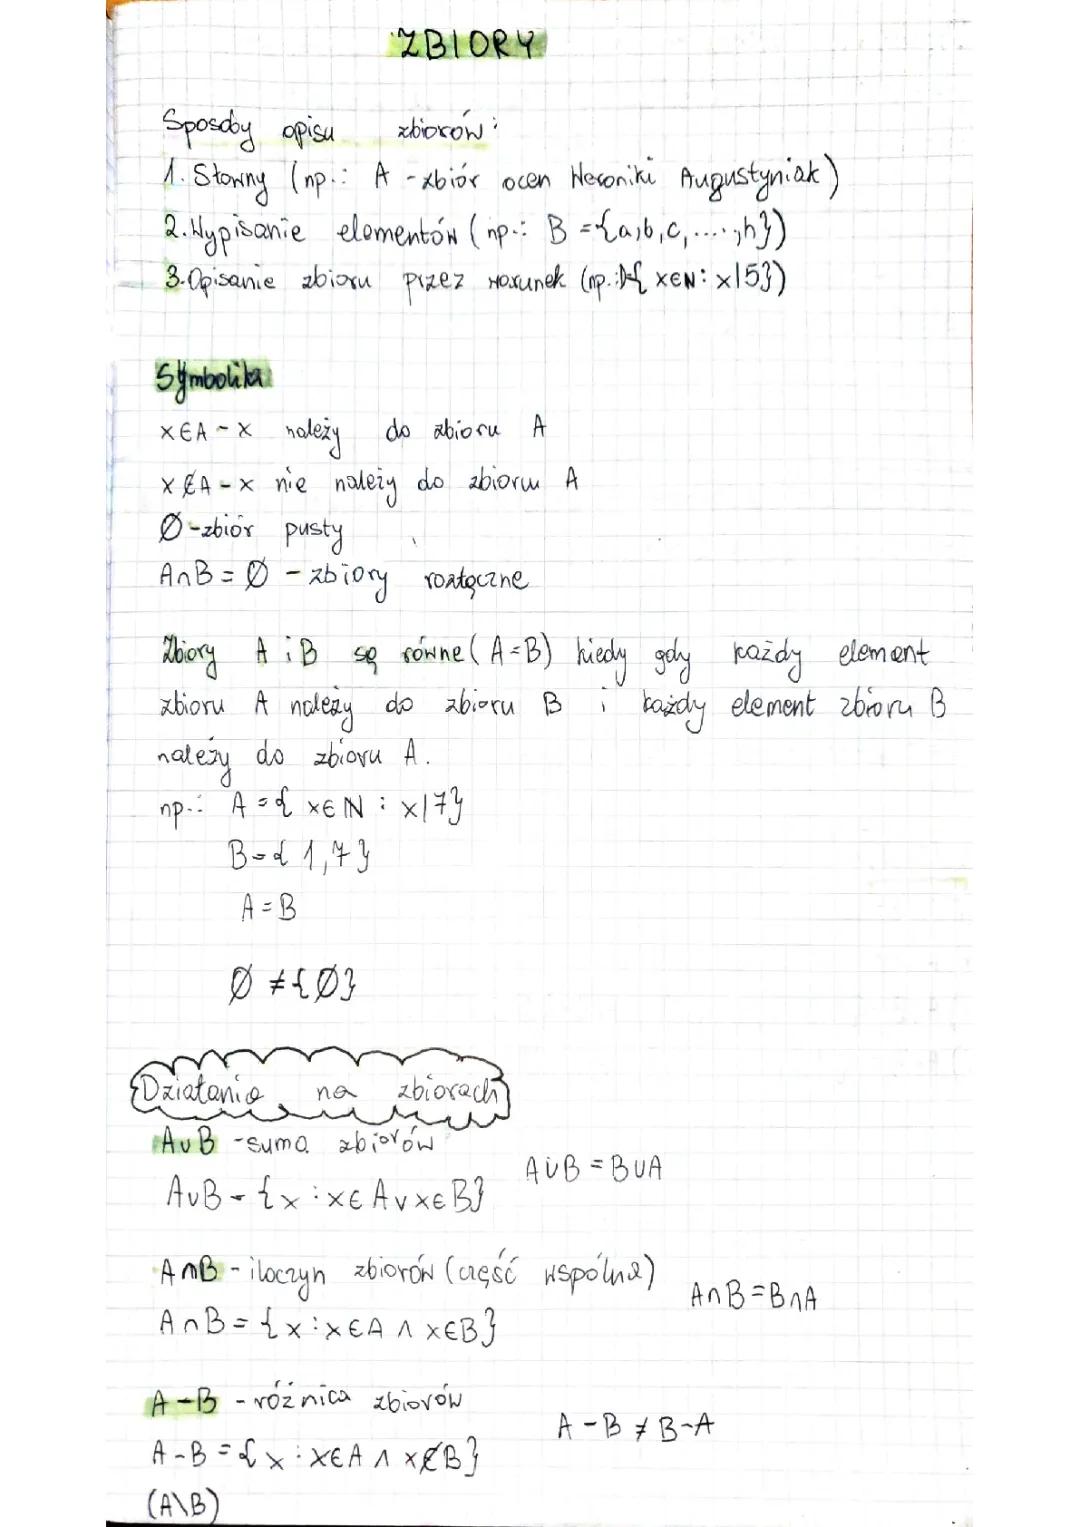 ZBIORY
Sposoby opisu zbiorów:
1. Słowny (np.: A - zbiór ocen Weroniki Augustyniak)
2. Wypisanie elementów (np.: B = {a,b,c,....,h})
3. Opisanie zbioru przez warunek (np.: { x∈N: x|5})
Symbolika
x∈A - x należy do zbioru A
x∉A - x nie należy do zbioru A
Ø - zbiór pusty
A∩B = Ø - zbiory rozłączne
Zbiory A i B są równe (A=B) kiedy gdy każdy element
zbioru A należy do zbioru B i każdy element zbioru B
należy do zbioru A.
np.: A = { x∈N : x|7}
B = { 1,7 }
A = B
Ø ≠ {Ø}
Działania na zbiorach
A∪B - suma zbiorów
A∪B = B∪A
A∪B = {x : x∈A ∨ x∈B}
A∩B - iloczyn zbiorów (część wspólna)
A∩B = B∩A
A∩B = {x : x∈A ∧ x∈B}
A-B - różnica zbiorów
A - B ≠ B - A
A-B = {x : x∈A ∧ x∉B}
(A\B)